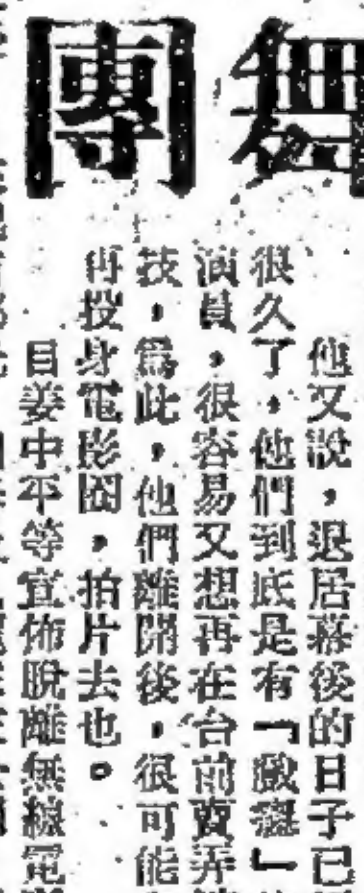 舞團
他又說，退居幕後的日子已
很久了，他們到底是有「戲癮」
演員，很容易又想再在台前賣弄
技，爲此，他們離開後，很可能
再投身電影圈，拍片去也。
目姜中平等宣佈脫離無線電